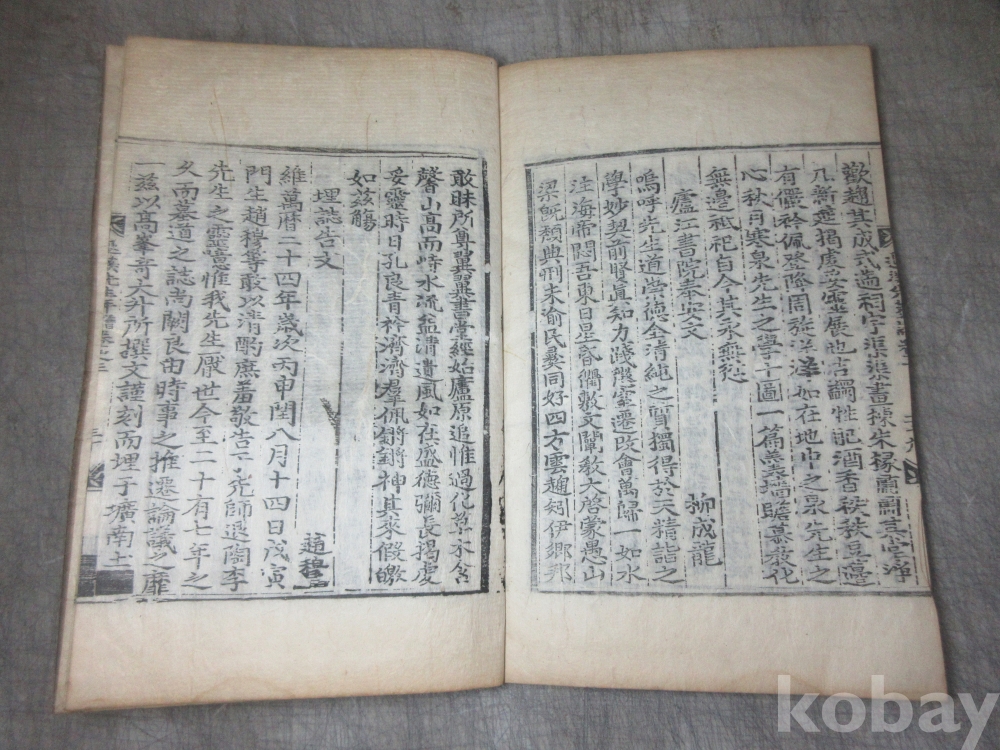 歡趨其成式遄祠宇渠渠晝棟朱椽關關其堂淨
几新筵揭虔妥靈展也吉蠲牲肥酒香秩秩豆籩
有儼衿佩登降周旋洋洋如在地中之泉先生之
心秋月寒泉先生之學十圖一篇羹墻瞻慕教化
無邊祗祀自今其永無愆
廬江書院奉安文
柳成龍
嗚呼先生道崇德全清純之質獨得於天精詣之
學妙契前賢眞知力踐深密遷改會萬歸一如水
注海帝悶吾東日星昏衢敷文闡教大啓蒙愚山
梁旣頹典刑未渝民彛同好四方雲趨矧伊鄉邦
敢昧所尊翼翼書堂經始廬原追惟過化草木含
馨山高而峙水流益清遺風如在盛德彌長揭虔
妥靈時日孔良青衿濟濟羣佩鏘鏘神其來假歆
如茲觴
埋誌告文
趙穆
維萬曆二十四年歲次丙申閏八月十四日戊寅
門生趙穆等敢以清酌庶羞敬告于先師退陶李
先生之靈噫惟我先生厭世今至二十有七年之
久而墓道之誌尚闕良由時事之推遷論議之靡
一茲以高峯奇大升所撰文謹刻而埋于壙南土
kobay